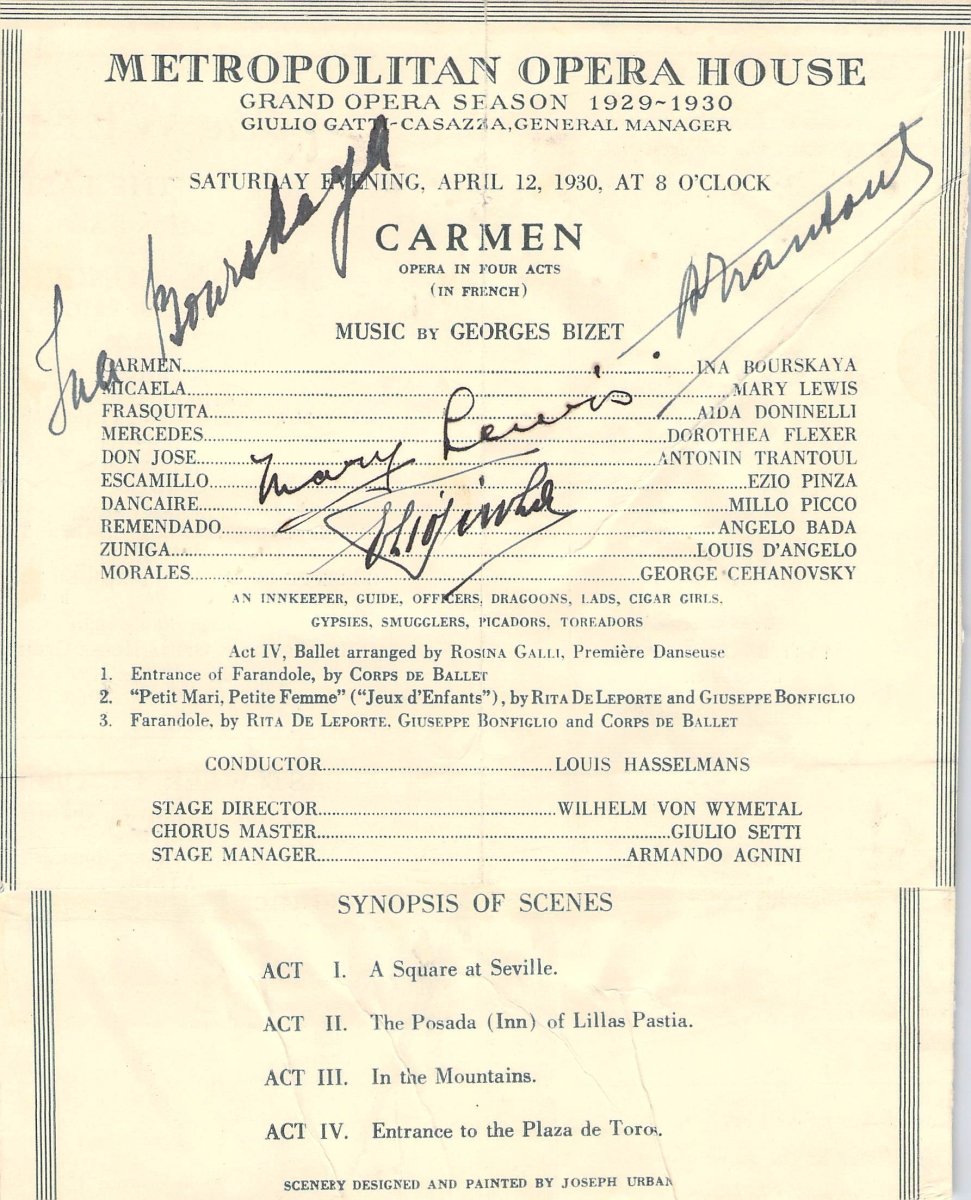 METROPOLITAN OPERA HOUSE
GRAND OPERA SEASON 1929~1930
GIULIO GATTI-CASAZZA, GENERAL MANAGER
SATURDAY EVENING, APRIL 12, 1930, AT 8 O'CLOCK
CARMEN
OPERA IN FOUR ACTS
(IN FRENCH)
MUSIC BY GEORGES BIZET
Ina Bourskaya
ATrantoul
CARMEN INA BOURSKAYA
MICAELA MARY LEWIS
FRASQUITA AIDA DONINELLI
MERCEDES DOROTHEA FLEXER
DON JOSE ANTONIN TRANTOUL
ESCAMILLO EZIO PINZA
DANCAIRE MILLO PICCO
REMENDADO ANGELO BADA
ZUNIGA LOUIS D'ANGELO
MORALES GEORGE CEHANOVSKY
Mary Lewis
Ezio Pinza
AN INNKEEPER, GUIDE, OFFICERS, DRAGOONS, LADS, CIGAR GIRLS,
GYPSIES, SMUGGLERS, PICADORS, TOREADORS
Act IV, Ballet arranged by ROSINA GALLI, Première Danseuse
1. Entrance of Farandole, by CORPS DE BALLET
2. "Petit Mari, Petite Femme" ("Jeux d'Enfants"), by RITA DE LEPORTE and GIUSEPPE BONFIGLIO
3. Farandole, by RITA DE LEPORTE, GIUSEPPE BONFIGLIO and CORPS DE BALLET
CONDUCTOR LOUIS HASSELMANS
STAGE DIRECTOR WILHELM VON WYMETAL
CHORUS MASTER GIULIO SETTI
STAGE MANAGER ARMANDO AGNINI
SYNOPSIS OF SCENES
ACT I. A Square at Seville.
ACT II. The Posada (Inn) of Lillas Pastia.
ACT III. In the Mountains.
ACT IV. Entrance to the Plaza de Toros.
SCENERY DESIGNED AND PAINTED BY JOSEPH URBAN